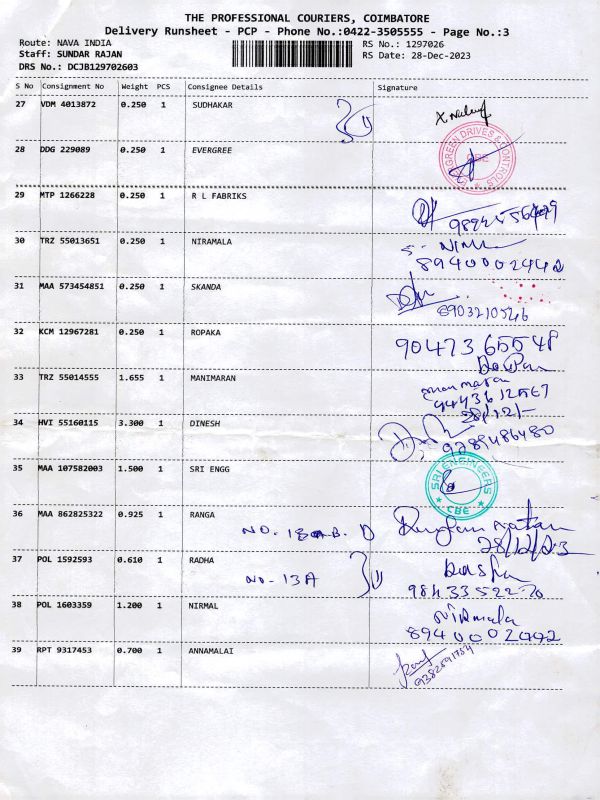 THE PROFESSIONAL COURIERS, COIMBATORE
Delivery Runsheet - PCP - Phone No.:0422-3505555 - Page No.:3
Route: NAVA INDIA
RS No.: 1297026
Staff: SUNDAR RAJAN
RS Date: 28-Dec-2023
DRS No.: DCJB129702603
S No Consignment No Weight PCS Consignee Details Signature
27 VDM 4013872 0.250 1 SUDHAKAR
28 DDG 229089 0.250 1 EVERGREE
EVERGREEN DRIVES & CONTROLS CBE
29 MTP 1266228 0.250 1 R L FABRIKS
30 TRZ 55013651 0.250 1 NIRAMALA
8940002442
31 MAA 573454851 0.250 1 SKANDA
8903210546
32 KCM 12967281 0.250 1 ROPAKA
9047365548
33 TRZ 55014555 1.655 1 MANIMARAN
34 HVI 55160115 3.300 1 DINESH
9789486480
35 MAA 107582003 1.500 1 SRI ENGG
SRI ENGINEERS CBE
36 MAA 862825322 0.925 1 RANGA
28/12/23
37 POL 1592593 0.610 1 RADHA NO-13A
9843352270
38 POL 1603359 1.200 1 NIRMAL Nirmala
8940002442
39 RPT 9317453 0.700 1 ANNAMALAI